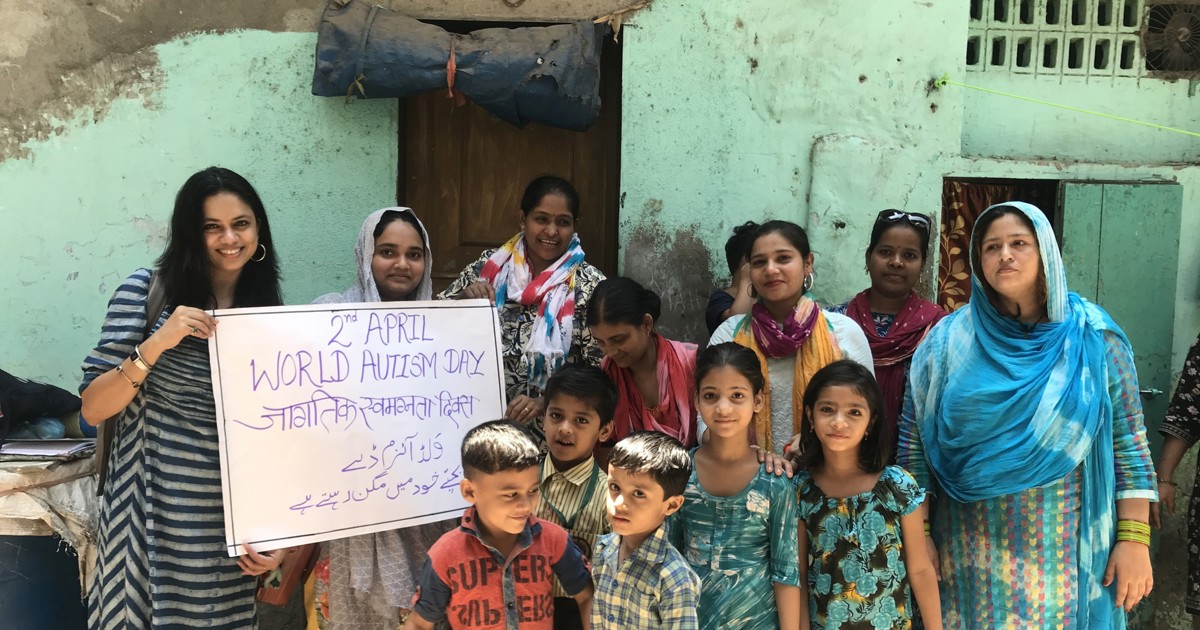 2nd APRIL
WORLD AUTISM DAY
जागतिक स्वमग्नता दिवस
ولڈ آٹزم ڈے
بچے خود میں مگن رہتے ہے
SUPERS